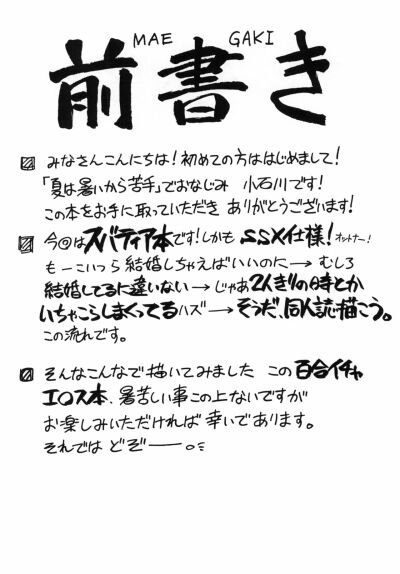 MAE GAKI
前書き
みなさんこんにちは!初めての方ははじめまして!
「夏は暑いから苦手」でおなじみ 小石川です!
この本をお手に取っていただき ありがとうございます!
今回はスバティア本です!しかもSSX仕様!オットナー!
もーこいつら結婚しちゃえばいいのに→ むしろ
結婚してるに違いない→じゃあ2人きりの時とか
いちゃこらしまくってるハズ→そうだ、同人誌描こう。
この流れです。
そんなこんなで描いてみました この百合イチャ
エロス本、暑苦しい事この上ないですが
お楽しみいただければ幸いであります。
それでは どぞ——。